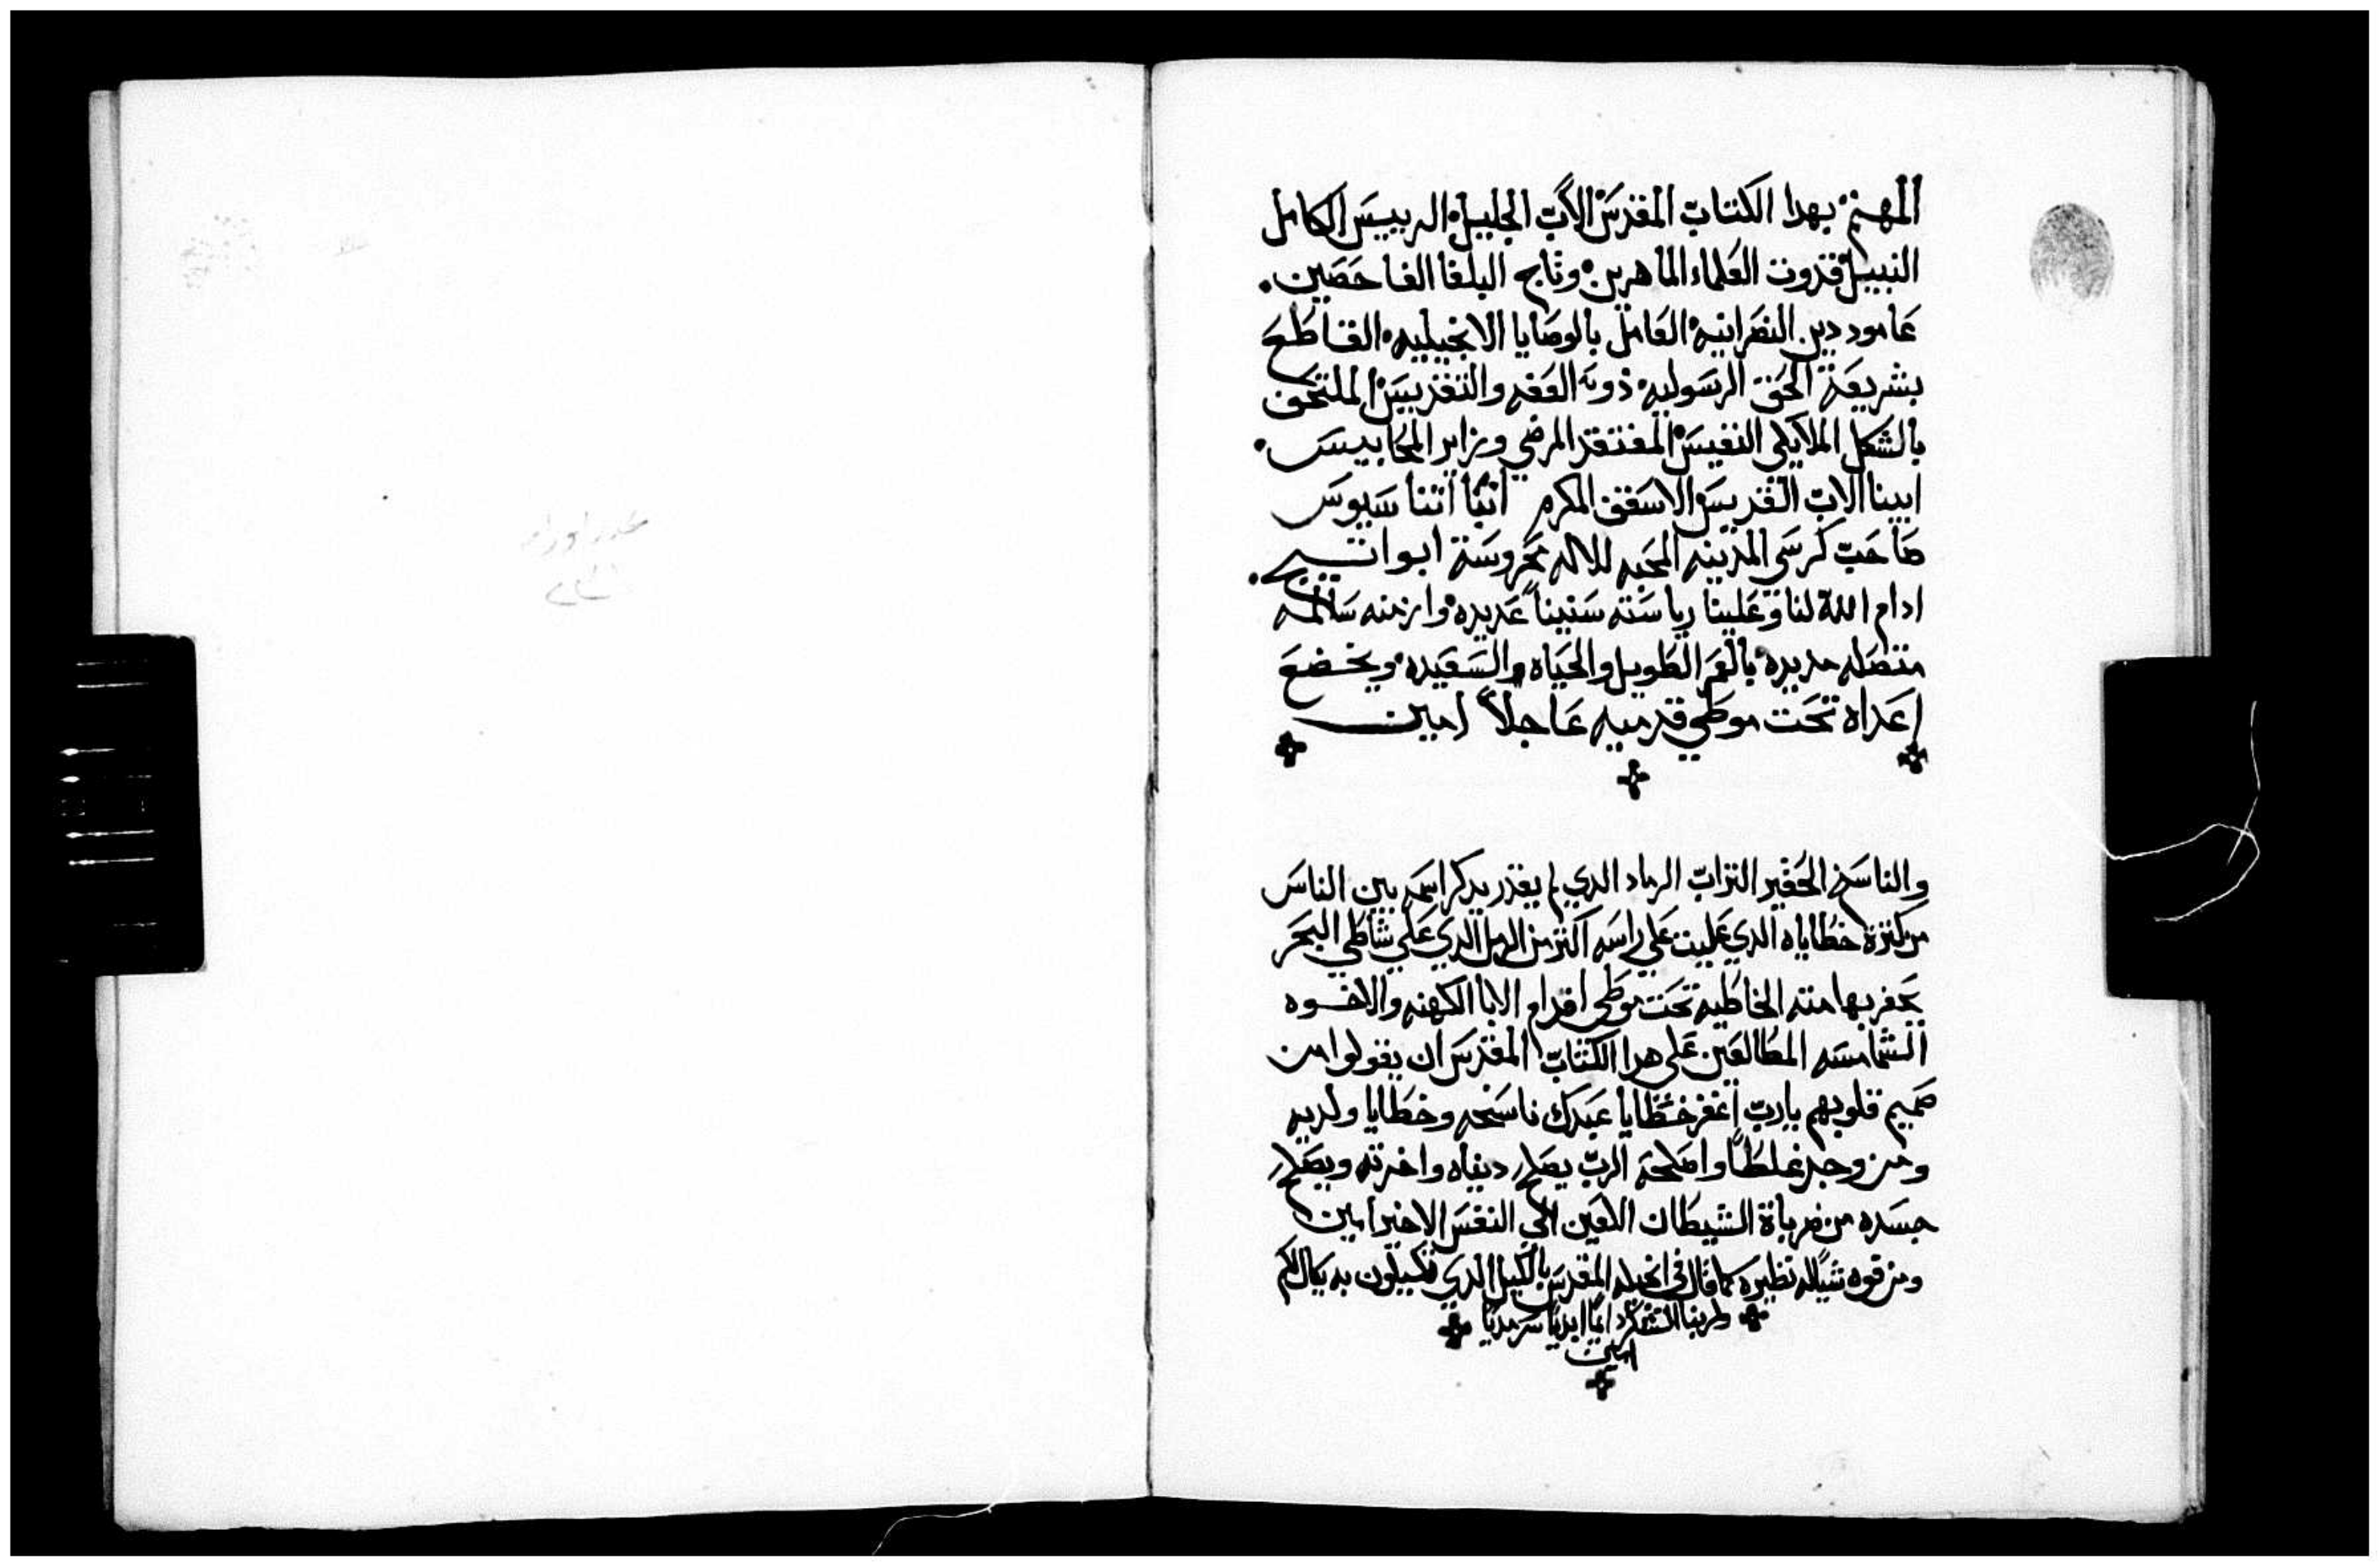 المهتم بهدا الكتاب المقدس الأب الجليل الرييس الكامل
النبيل قدوت العلماء الماهرين وتاج البلغا الفاحصين.
عامود دين النصرانيه العامل بالوصايا الانجيليه القاطع
بشريعة الحق الرسوليه ذوته العفه والتقديس الملتحف
بالشكل الملايكي النفيس المفتقد المرضي وزاير المحابيس.
ابينا الاب القديس الاسقف المكرم انبا اتناسيوس
صاحب كرسي المدينه المحبه للاله محروسة ابواتيج.
ادام الله لنا وعلينا رياسته سنيناً عديده وازمنه سالمه
متصله مديده بالعمر الطويل والحياه والسعيده ويخضع
اعداه تحت موطي قدميه عاجلاً امين
والناسخ الحقير التراب الرماد الدي لم يقدر يدكر اسمه بين الناس
من كترة خطاياه الدي عليت علي راسه اكتر من الرمل الدي علي شاطي البحر
يعفر بهامته الخاطيه تحت موطي اقدام الابا الكهنه والاخوه
الشمامسه المطالعين علي هدا الكتاب المقدس ان يقولوا من
صميم قلوبهم يارب اغفر خطايا عبدك ناسخه وخطايا ولديه
ومن وجد غلطاً واصلحه الرب يصلح دنياه واخرته ويصلح
جسده من ضرباة الشيطان اللعين الي النفس الاخير امين
ومن قوه شيًا له نظيره كما قال في انجيله المقدس بالكيل الدي تكيلون به يكال لكم
ولربنا الشكر دايماً ابدياً سرمديا
امين